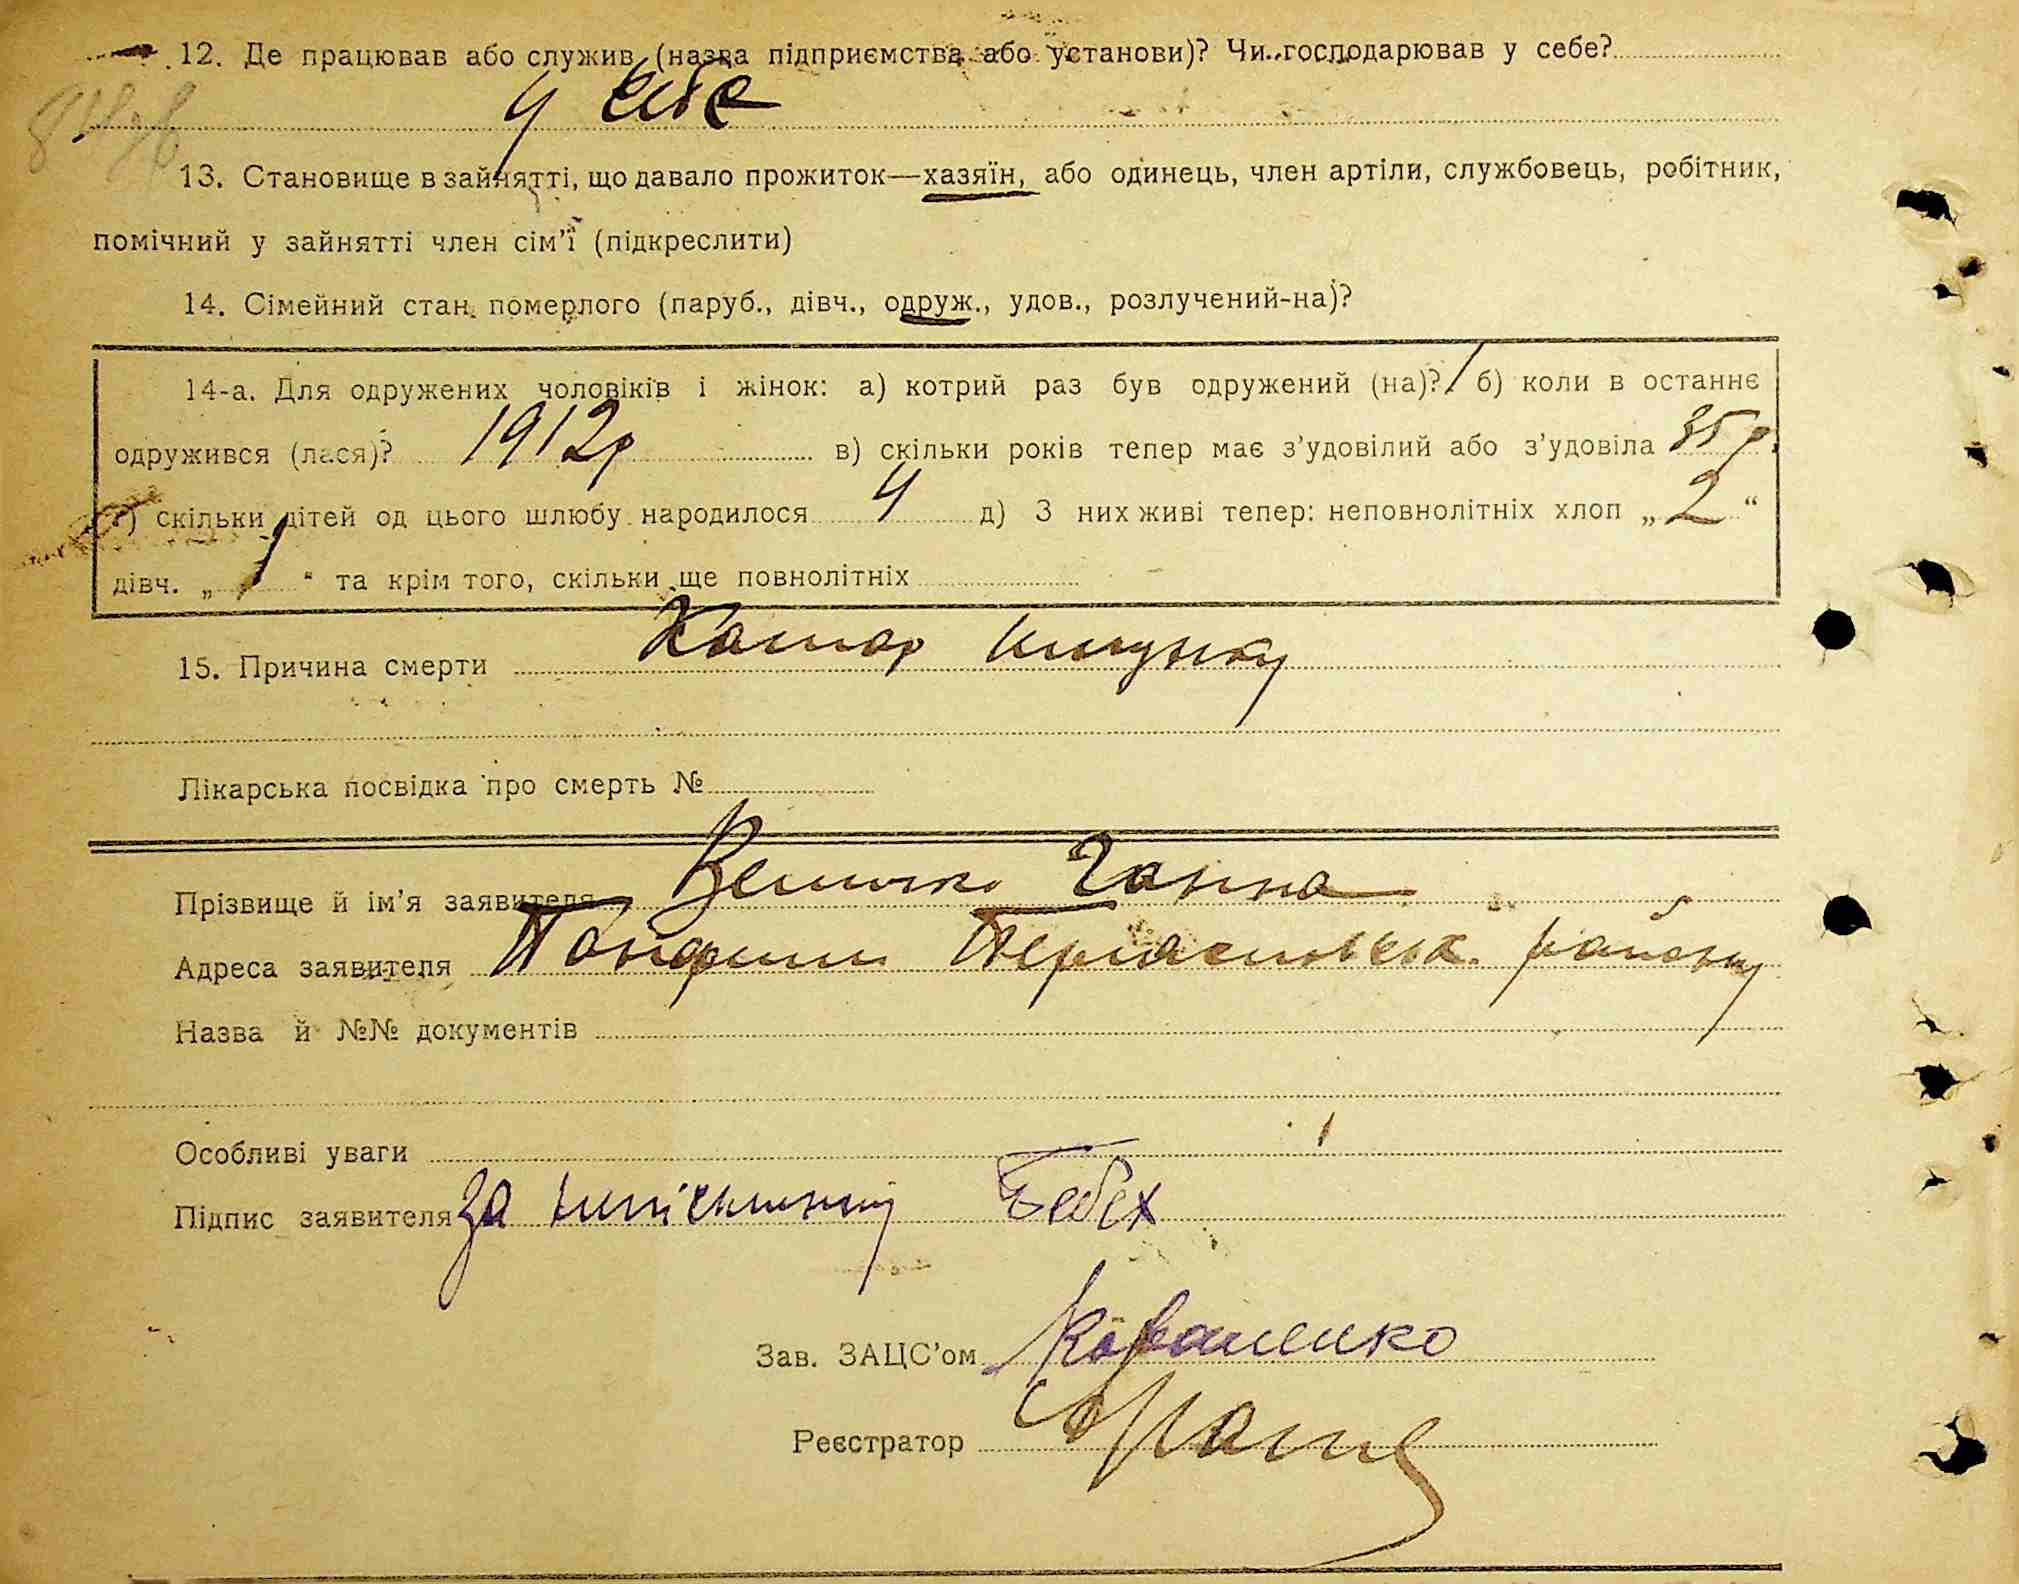 12. Де працював або служив (назва підприємства або установи)? Чи господарював у себе?
у себе
13. Становище в зайнятті, що давало прожиток—хазяїн, або одинець, член артіли, службовець, робітник,
помічний у зайнятті член сім'ї (підкреслити)
14. Сімейний стан померлого (паруб., дівч., одруж., удов., розлучений-на)?
14-а. Для одружених чоловіків і жінок: а) котрий раз був одружений (на)? 1 б) коли в останнє
одружився (лася)? 1912р в) скільки років тепер має з'удовілий або з'удовіла 35 р.
г) скільки дітей од цього шлюбу народилося 4 д) З них живі тепер: неповнолітніх хлоп „ 2 “
дівч. „ 1 “ та крім того, скільки ще повнолітніх
15. Причина смерти Катар шлунку
Лікарська посвідка про смерть №
Прізвище й ім'я заявителя Величко Ганна
Адреса заявителя району
Назва й №№ документів
Особливі уваги
Підпис заявителя за Бебех
Зав. ЗАЦС'ом Коваленко
Реєстратор